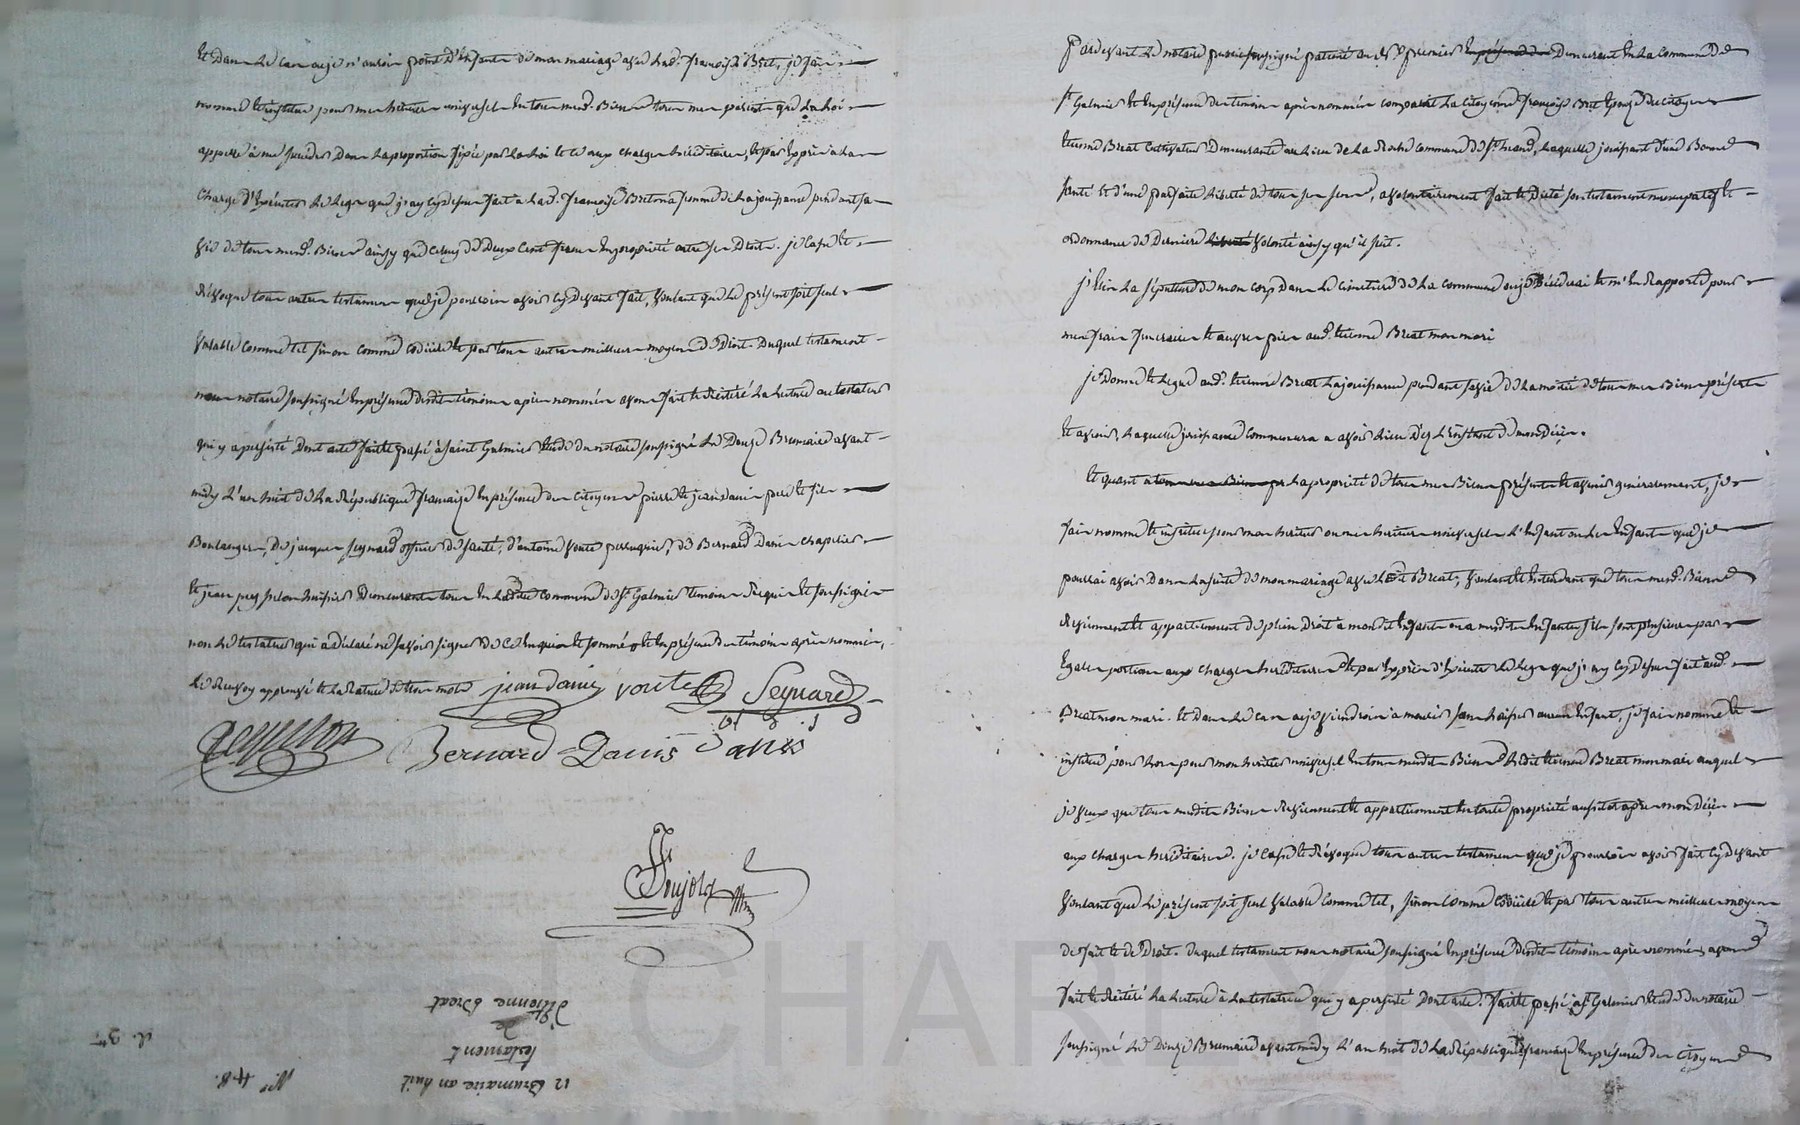 Et dans le cas ou je n'aurois point d'Enfants de mon mariage avec lad. françoise Bret, je fais
nomme et institue pour mes heritiers universels En tous mesd. Biens tous mes parents que la Loi
appelle à me succéder dans la proportion fixée par la Loi et ce aux charges héréditaires, et par Exprès à la
charge d'Exécuter le legs que j'ay cy dessus fait à lad. françoise Bret ma femme de la jouissance pendant sa
vie de tous mesd. Biens ainsy que celuy de deux Cent francs En propriété outre ses Droits. je casse et
Révoque tous autres testaments que je pourrois avoir cy devant fait, Voulant que le présent soit seul
Valable comme tel sinon comme codicile et par tous autres meilleurs moyens de Droit. Duquel testament
nous notaire soussigné En présence desdits témoins après nommés avons fait et Réitéré la lecture au testateur
qui y a persisté Dont acte fait et passé à Saint Galmier Etude du notaire soussigné le Douze Brumaire avant
midy L'an huit de la République française En présence des citoyens pierre et jean Danis pere et fils
Boulangers, de jacques Seynard officier de santé, d'antoine Voute perruquier, de Bernard Danis chapelier
et jean peysselon huissier Demeurants tous En Ladite commune de St. Galmier témoins Requis et soussignés
non le testateur qui a déclaré ne savoir signer de ce Enquis et sommé En présence des témoins après nommés,
le Renvoy approuvé et la Rature de trois mots jean danis voute Seynard
peysselon Bernard Danis Danis
Pujol
Par devant Le notaire public soussigné patenté au Demeurant En la Commune de
St. Galmier Et En présence des témoins après nommés comparait La Citoyenne françoise Bret Epouse du citoyen
Etienne Breat Cultivateur Demeurante au Lieu de La Roche commune de St. , Laquelle jouissant d'une Bonne
santé et d'une parfaite Liberté de tous ses sens, a volontairement fait et Dicté son testament nuncupatif et
ordonnance de Derniere Volonté ainsy qu'il suit.
j'Elis La sépulture de mon corps Dans Le cimetière de La commune ou je Décéderai et m'En Rapporte pour
mes frais funeraires et œuvres pies aud. Etienne Breat mon mari
je Donne et Legue aud. Etienne Breat La jouissance pendant sa vie de La moitié de tous mes Biens présents
et avenir, Laquelle jouissance Commencera a avoir Lieu Dez L'instant de mon Décès.
Et quant a La propriété de tous mes Biens présents et avenir généralement, je
fais nomme et institue pour mon heritier ou mes heritiers universels L'Enfant ou les Enfants que je
pourrai avoir Dans La suite de mon mariage avec Led. Breat, Voulant et Entendant que tous mesd. Biens
Reviennent et appartiennent de plein Droit a mondit Enfant ou a mesdits Enfants s'ils sont plusieurs par
Egales portions aux charges héréditaires et par Exprès d'Executer Le Legs que j'ay cy dessus fait aud.
Breat mon mari. Et Dans Le cas ou je Viendrois a mourir sans Laisser aucun Enfant, je fais nomme et
institue pour Lors pour mon heritier universel En tous mesdits Biens Ledit Etienne Breat mon mari auquel
je Veux que tous mesdits Biens Reviennent et appartiennent En toute propriété aussitot après mon Décès
aux charges héréditaires. je Casse et Révoque tous autres testaments que je pourrois avoir fait cy Devant
Voulant que Le présent soit seul Valable Comme tel, sinon comme Codicile et par tous autres meilleurs moyens
de fait et de Droit. Duquel testament nous notaire soussigné En présence desdits témoins après nommés, avons
fait et Réitéré La Lecture à La testatrice qui y a persisté Dont acte. fait et passé à St. Galmier Etude du notaire
soussigné Le Douze Brumaire avant midy L'an huit de La République française En présence des Citoyens
12 Brumaire an huit
Testament
de
Etienne Breat
N.° 48.